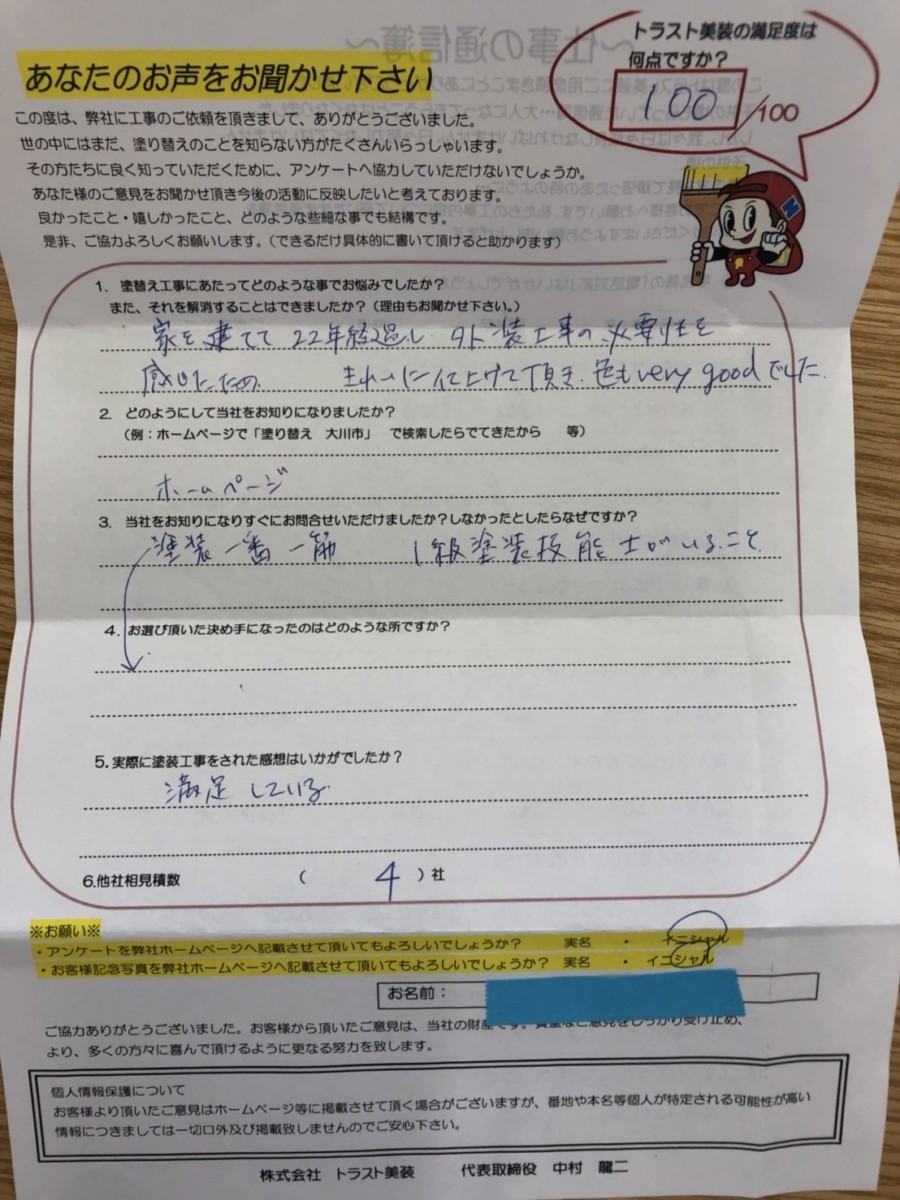 ～仕事の通信簿～
トラスト美装の満足度は
何点ですか？
100/100
あなたのお声をお聞かせ下さい
この度は、弊社に工事のご依頼を頂きまして、ありがとうございました。
世の中にはまだ、塗り替えのことを知らない方がたくさんいらっしゃいます。
その方たちに良く知っていただくために、アンケートへ協力していただけないでしょうか。
あなた様のご意見をお聞かせ頂き今後の活動に反映したいと考えております。
良かったこと・嬉しかったこと、どのような些細な事でも結構です。
是非、ご協力よろしくお願いします。（できるだけ具体的に書いて頂けると助かります）
1. 塗替え工事にあたってどのような事でお悩みでしたか？
また、それを解消することはできましたか？（理由もお聞かせ下さい。）
家を建てて 22年経過し 外装工事の必要性を
感じたため きれいに仕上げて頂き、色もvery goodでした。
2. どのようにして当社をお知りになりましたか？
（例：ホームページで「塗り替え 大川市」 で検索したらでてきたから 等）
ホームページ
3. 当社をお知りになりすぐにお問合せいただけましたか？しなかったとしたらなぜですか？
塗装一番一筋 1級塗装技能士がいること
4. お選び頂いた決め手になったのはどのような所ですか？
5. 実際に塗装工事をされた感想はいかがでしたか？
満足している
6.他社相見積数 （ 4 ）社
※お願い※
・アンケートを弊社ホームページへ記載させて頂いてもよろしいでしょうか？ 実名 ・ イニシャル
・お客様記念写真を弊社ホームページへ記載させて頂いてもよろしいでしょうか？ 実名 ・ イニシャル
お名前：
ご協力ありがとうございました。お客様から頂いたご意見は、当社の財産です。貴重なご意見をしっかり受け止め、
より、多くの方々に喜んで頂けるように更なる努力を致します。
個人情報保護について
お客様より頂いたご意見はホームページ等に掲載させて頂く場合がございますが、番地や本名等個人が特定される可能性が高い
情報につきましては一切口外及び掲載致しませんのでご安心下さい。
株式会社 トラスト美装 代表取締役 中村 龍二